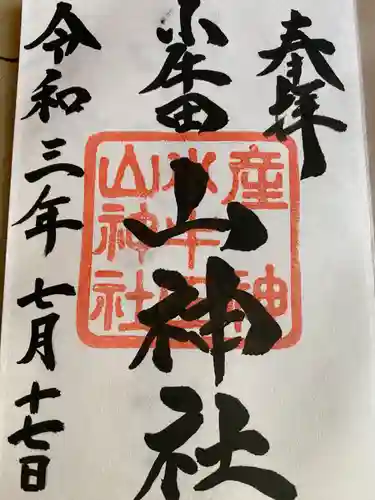 奉拝
小牛田山神社
産神
小牛田
山神社
令和三年七月十七日